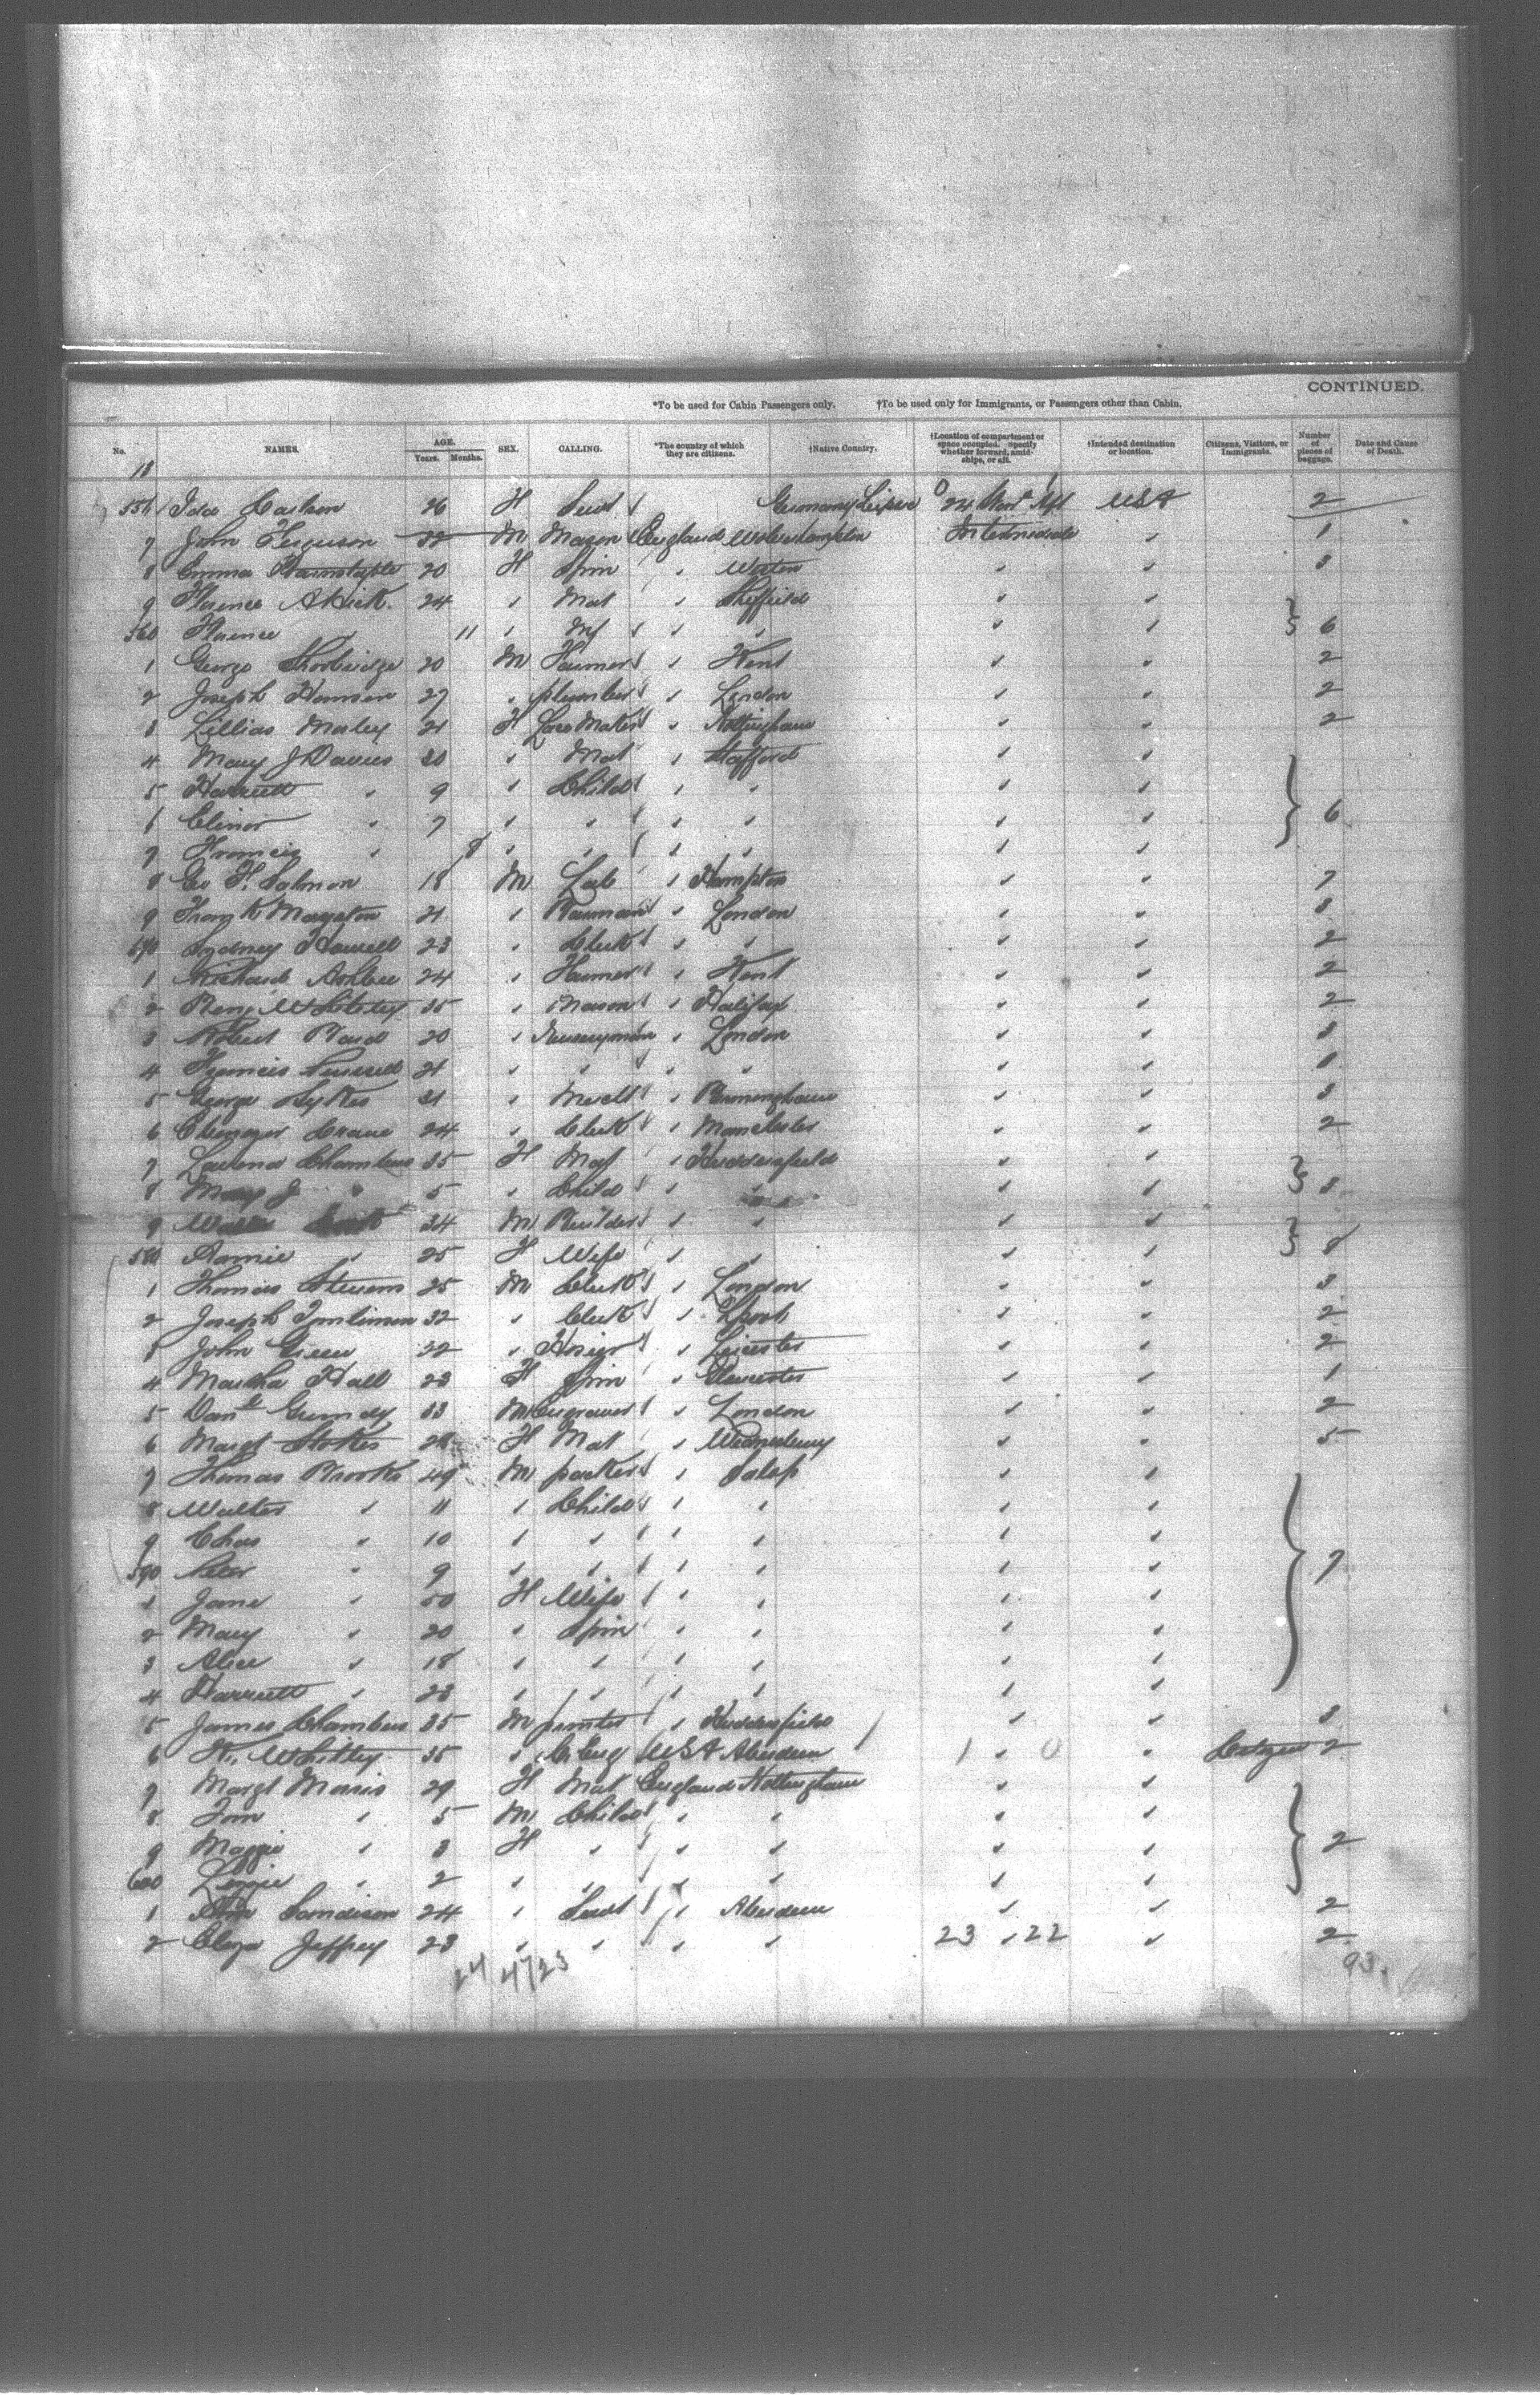 CONTINUED.
*To be used for Cabin Passengers only. †To be used only for Immigrants, or Passengers other than Cabin.
No. NAMES. AGE. Years. Months. SEX. CALLING. *The country of which they are citizens. †Native Country. †Location of compartment or space occupied. Specify whether forward, amidships, or aft. †Intended destination or location. Citizens, Visitors, or Immigrants. Number of pieces of baggage. Date and Cause of Death.
18
556 Ida 26 F Servt Germany 24 Aft USA 2
7 John Ferguson 32 M Mason England Wolverhampton Intermediate " 1
8 Emma Barnstaple 20 F Spin " Weston " " 3
9 Florence A Hick. 24 " Mat " Sheffield " "
560 Florence " 11 " Inf " " " " 6
1 George 20 M Farmer " Kent " " 2
2 Joseph 27 " plumber " London " " 2
3 Lillias Morley 21 F Lace Maker " Nottingham " " 2
4 Mary J Davies 30 " Mat " Stafford " "
5 Harriett " 9 " Child " " " "
6 Elinor " 7 " " " " " " 6
7 Francis " 8 " " " " " "
8 Geo F. Salmon 18 M Lab " Hampton " " 7
9 Thom 21 " " London " " 3
570 Sydney 23 " Clerk " " " " 2
1 Richard Ashbee 24 " Farmer " Kent " " 2
2 Benj Whiteley 35 " Mason " Halifax " " 2
3 Robert 20 " Nurseryman " London " " 3
4 Francis 21 " " " " " "
5 George Sykes 31 " " Birmingham " " 3
6 Ebenezer Crane 24 " Clerk " Manchester " " 2
7 Chambers 35 F Mat " Huddersfield " "
8 Mary J " 5 " Child " " " " 3
9 Walter 34 M Builder " " " "
580 Annie " 25 F Wife " " " " 8
1 Thomas Stevens 25 M Clerk " London " " 3
2 Joseph Tomlinson 32 " Clerk " " " 2
3 John Green 32 " Hosier " Leicester " " 2
4 Martha Hall 23 F Spin " Gloucester " " 1
5 Danl Grundy 33 M Engraver " London " " 2
6 Margt Stokes 28 F Mat " Wednesbury " " 5
7 Thomas Brooks 49 M packer " Salop " "
8 Walter " 11 " Child " " " "
9 Chas " 10 " " " " " "
590 Peter " 9 " " " " " " 7
1 Jane " 50 F Wife " " " "
2 Mary " 20 " Spin " " " "
3 Alice " 18 " " " " " "
4 Harriett " 23 " " " " " "
5 James Chambers 35 M " Huddersfield " " 3
6 Whitley 35 " C. Eng USA Aberdeen 1 " 0 " Citizen 2
7 Margt Morris 29 F Mat England Nottingham " "
8 Tom " 5 M Child " " " "
9 Maggie " 3 F " " " " " 2
600 Lizzie " 2 " " " " " "
1 Ann Sandison 24 " Servt " Aberdeen " " 2
2 Eliza Jeffrey 23 " " " " 23 " 22 " 2
24 47 23 93.